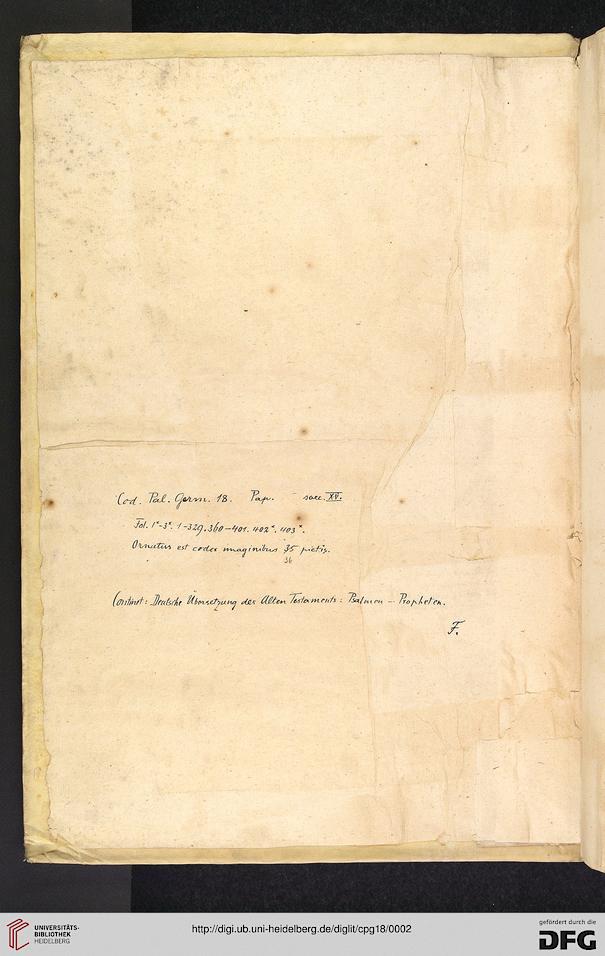 Cod. Pal. Germ. 18. Pap. saec. XV.
Fol. 1*-3*. 1-329. 360-401. 402*. 403*.
Ornatus est codex imaginibus 35 pictis.
36
Continet: Deutsche Übersetzung des Alten Testaments: Psalmen - Propheten.
F.
UNIVERSITÄTS-
BIBLIOTHEK
HEIDELBERG
http://digi.ub.uni-heidelberg.de/diglit/cpg18/0002
gefördert durch die
DFG